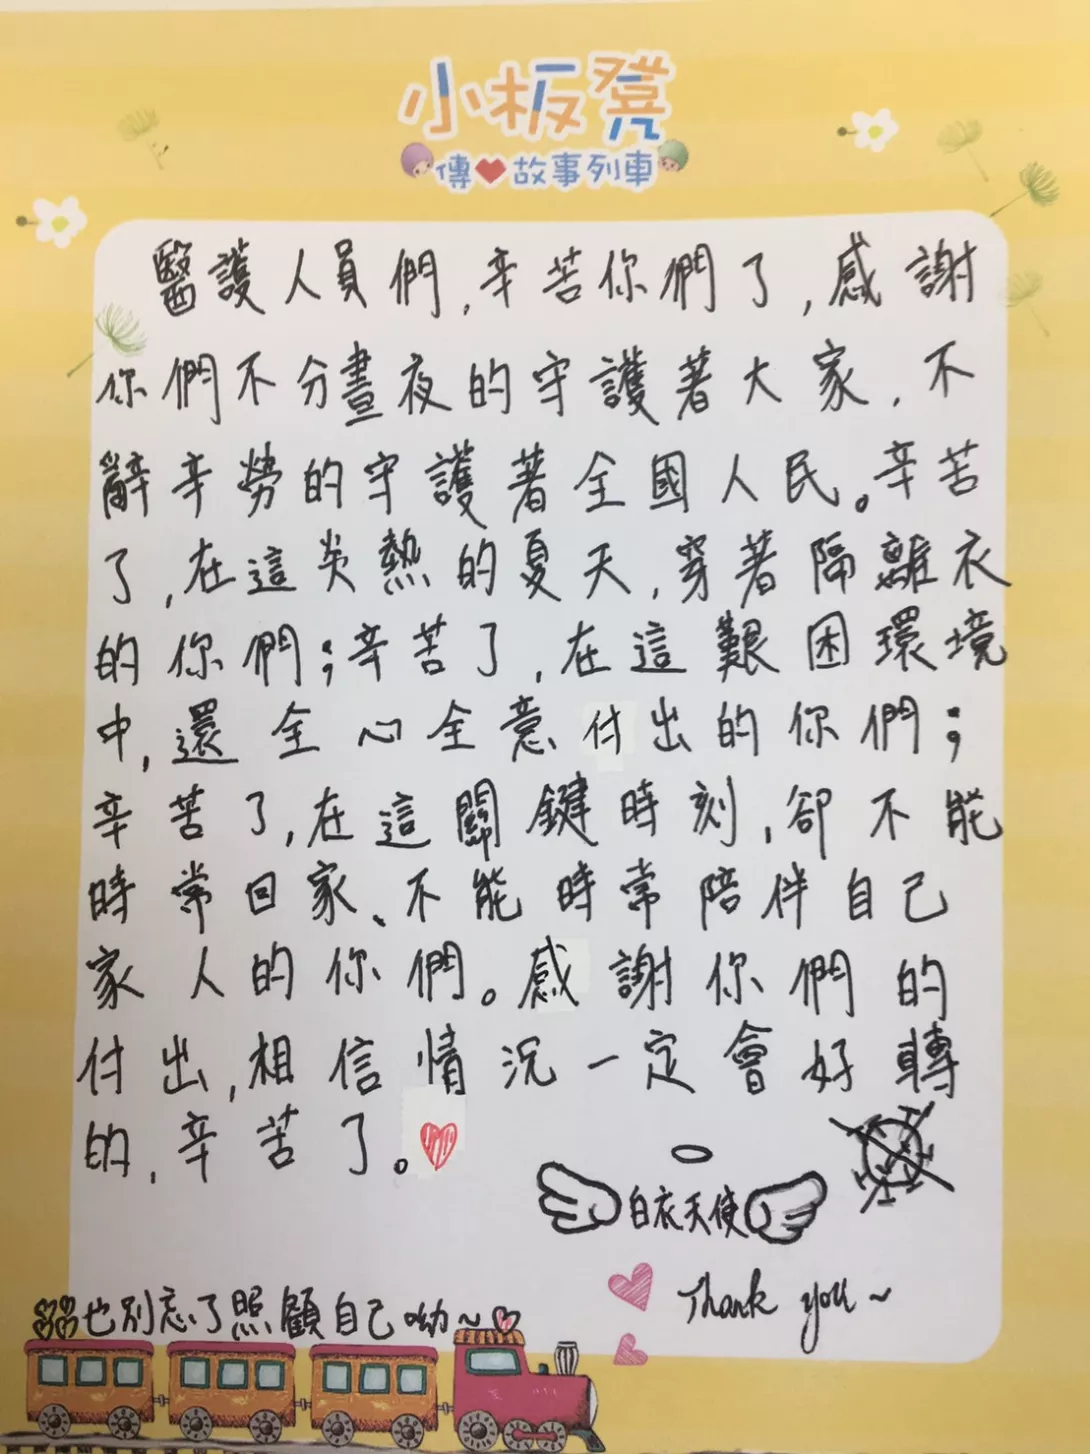 小板凳
傳❤故事列車
醫護人員們,辛苦你們了,感謝
你們不分晝夜的守護著大家,不
辭辛勞的守護著全國人民。辛苦
了,在這炎熱的夏天,穿著隔離衣
的你們;辛苦了,在這艱困環境
中,還全心全意付出的你們;
辛苦了,在這關鍵時刻,卻不能
時常回家、不能時常陪伴自己
家人的你們。感謝你們的
付出,相信情況一定會好轉
的,辛苦了。
白衣天使
Thank you~
也別忘了照顧自己呦~